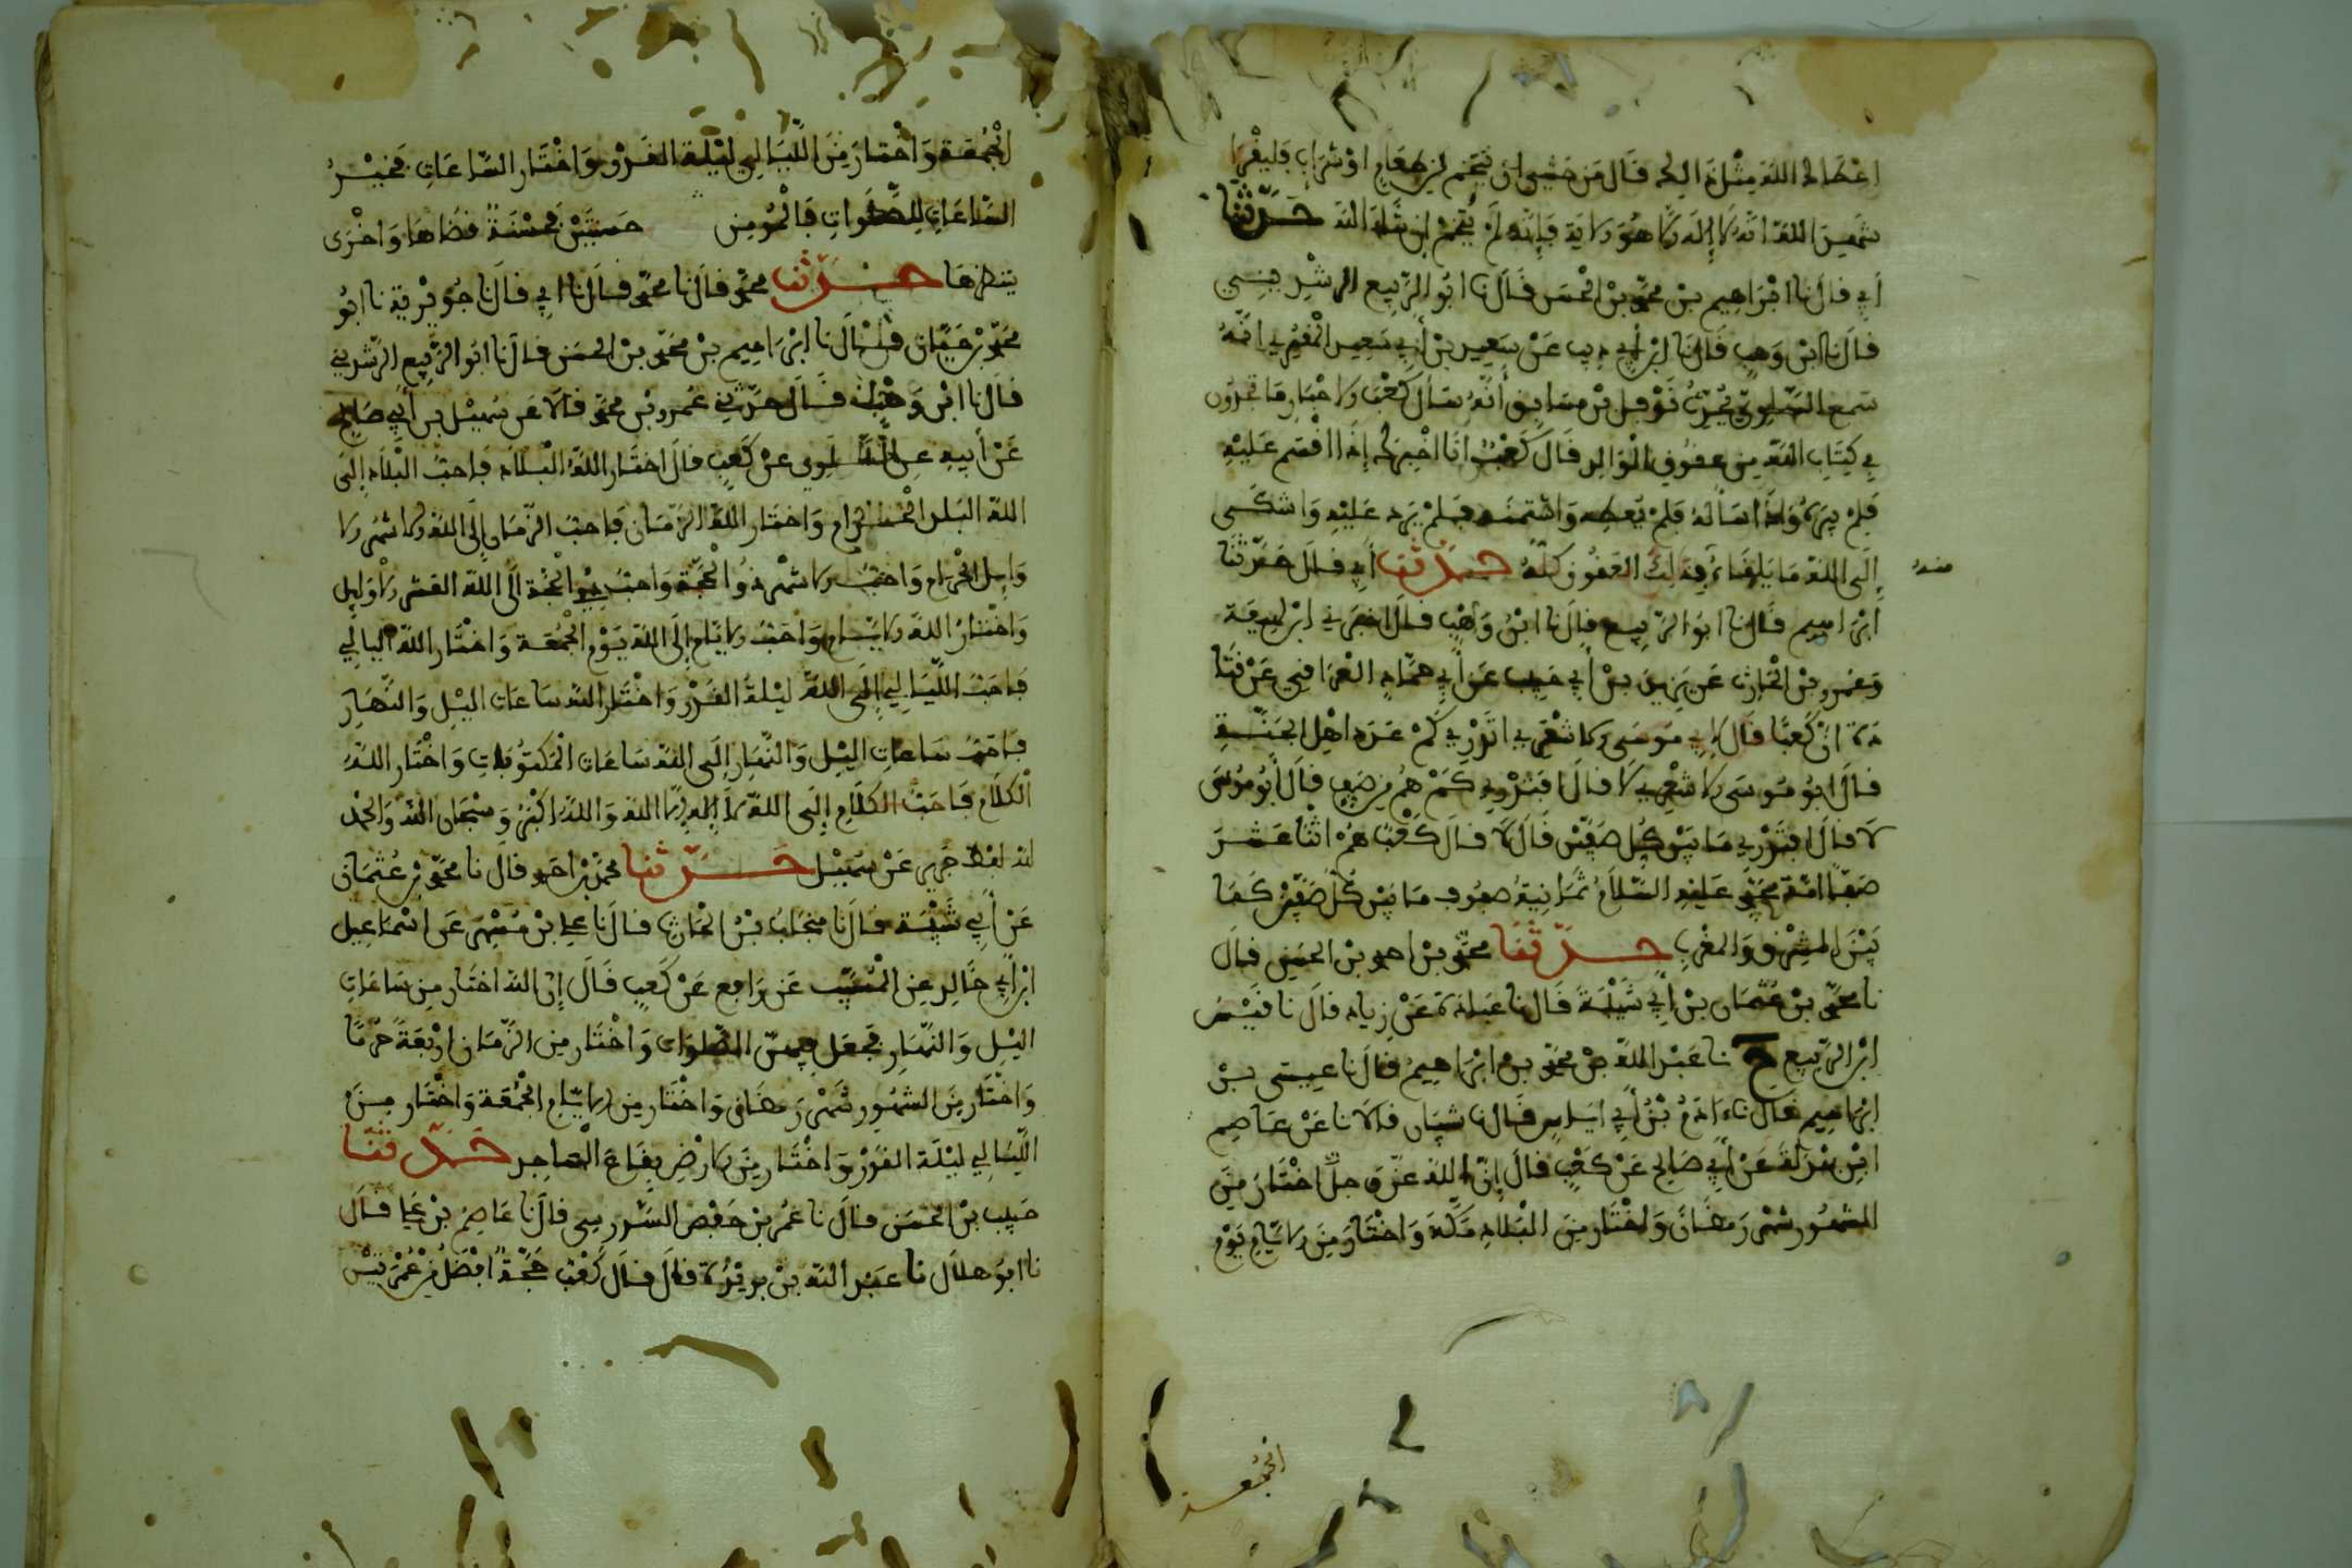 اعطاه الله مثل ذالك قال من خشي ان يتخم من طعام او شراب فليقرا
شهد الله انه لا إله الا هو الاية فإنه لم يتخم ان شاء الله حدثنا
أبي قال نا ابراهيم بن محمد بن الحسن قال نا ابو الربيع الرشديني
قال نا ابن وهب قال نا ابن أبي ذيب عن سعيد بن أبي سعيد المقبري انه
سمع السلولي يحدث نوفل بن مساحق أنه سأل كعب الاحبار ما تجدون
في كتاب الله من عقوق الوالد قال كعب انا اخبرك إذا اقسم عليه
فلم يبره وإذا سأله فلم يعطه وائتمنه فلم يرد عليه واشتكى
إلى الله ما يلقاه فذلك العقوق كله حدثنا أبي قال حدثنا
منه
ابراهيم قال نا ابو الربيع قال نا ابن وهب قال اخبرني ابن لهيعة
وعمرو بن الحارث عن يزيد بن أبي حبيب عن أبي همام المعافري عن قتا
دة ان كعبا قال لابي موسى الاشعري اتدري كم عدد اهل الجنة
قال ابو موسى الاشعري لا قال افتدري كم هم من صف قال أبو موسى
لا قال افتدري ما بين كل صفين قال لا قال كعب هم اثنا عشر
صفا امة محمد عليه السلام ثمانية صفوف ما بين كل صفين كما
بين المشرق والمغرب حدثنا محمد بن احمد بن الحسن قال
نا محمد بن عثمان بن أبي شيبة قال نا عبادة عن زياد قال نا قيس
ابن الربيع ح نا عبد الله بن محمد بن ابراهيم قال نا عيسى بن
ابراهيم قال نا ءادم بن أبي اياس قال نا شيبان قالا نا عن عاصم
ابن بهدلة عن أبي صالح عن كعب قال إن الله عز وجل اختار من
الشهور شهر رمضان واختار من البلاد مكة واختار من الايام يوم
الجمعة
الجمعة واختار من الليالي ليلة القدر واختار الساعات فخير
الساعات للصلوات فالمومن حسنتين فحسنة قضاها واخرى
ينتظرها حدثنا محمد قال نا محمد قال نا ابي قال نا جويرية نا ابو
محمد بن حيان قال نا ابراهيم بن محمد بن الحسن قال نا ابو الربيع الرشديني
قال نا ابن وهب قال حدثني عمرو بن محمد قالا عن سهيل بن أبي صالح
عن أبيه عن السلولي عن كعب قال اختار الله البلاد فاحب البلاد إلى
الله البلد الحرام واختار الله الزمان فاحب الزمان إلى الله الاشهر الا
وايل الحرام واحب الاشهر ذو الحجة واحب ذي الحجة الى الله العشر الاوايل
واختار الله الايام واحب الايام إلى الله يوم الجمعة واختار الله اليالي
فاحب الليالي إلى الله ليلة القدر واختار الله ساعات اليل والنهار
فاحب ساعات اليل والنهار إلى الله ساعات المكتوبات واختار الله
الكلام فاحب الكلام إلى الله لا إله الا الله والله اكبر وسبحان الله والحمد
لله لفظ جرير عن سهيل حدثنا محمد بن احمد قال نا محمد بن عثمان
عن أبي شيبة قال نا منجاب بن الحارث قال نا علي بن مسهر عن اسماعيل
ابن أبي خالد عن المسيب عن رافع عن كعب قال إن الله اختار من ساعات
اليل والنهار فجعل فيهن الصلوات واختار من الزمان اربعة حرما
واختار من الشهور شهر رمضان واختار من الايام الجمعة واختار من
الليالي ليلة القدر واختار من الارض بقاع المساجد حدثنا
حبيب بن الحسن قال نا عمر بن حفص السدوسي قال نا عاصم بن علي قال
نا ابو هلال نا عبد الله بن بريدة قال قال كعب حجة افضل من عمرتين